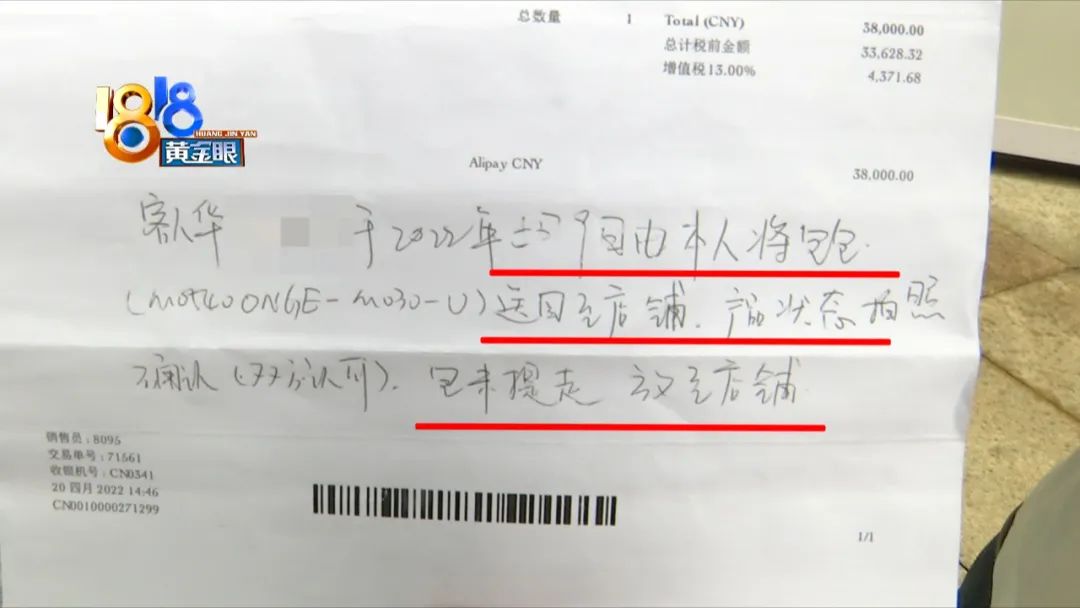 总数量 1 Total (CNY) 38,000.00
总计税前金额 33,628.32
增值税13.00% 4,371.68
1818
HUANG JIN YAN
黄金眼
Alipay CNY 38,000.00
客人华 于2022年 9日由本人将包包
送回至店铺、产品状态拍照
确认(双方认可)、包未提走 放至店铺
销售员：8095
交易单号：71561
收银机号：CN0341
20 四月 2022 14:46
CN0010000271299
1/1